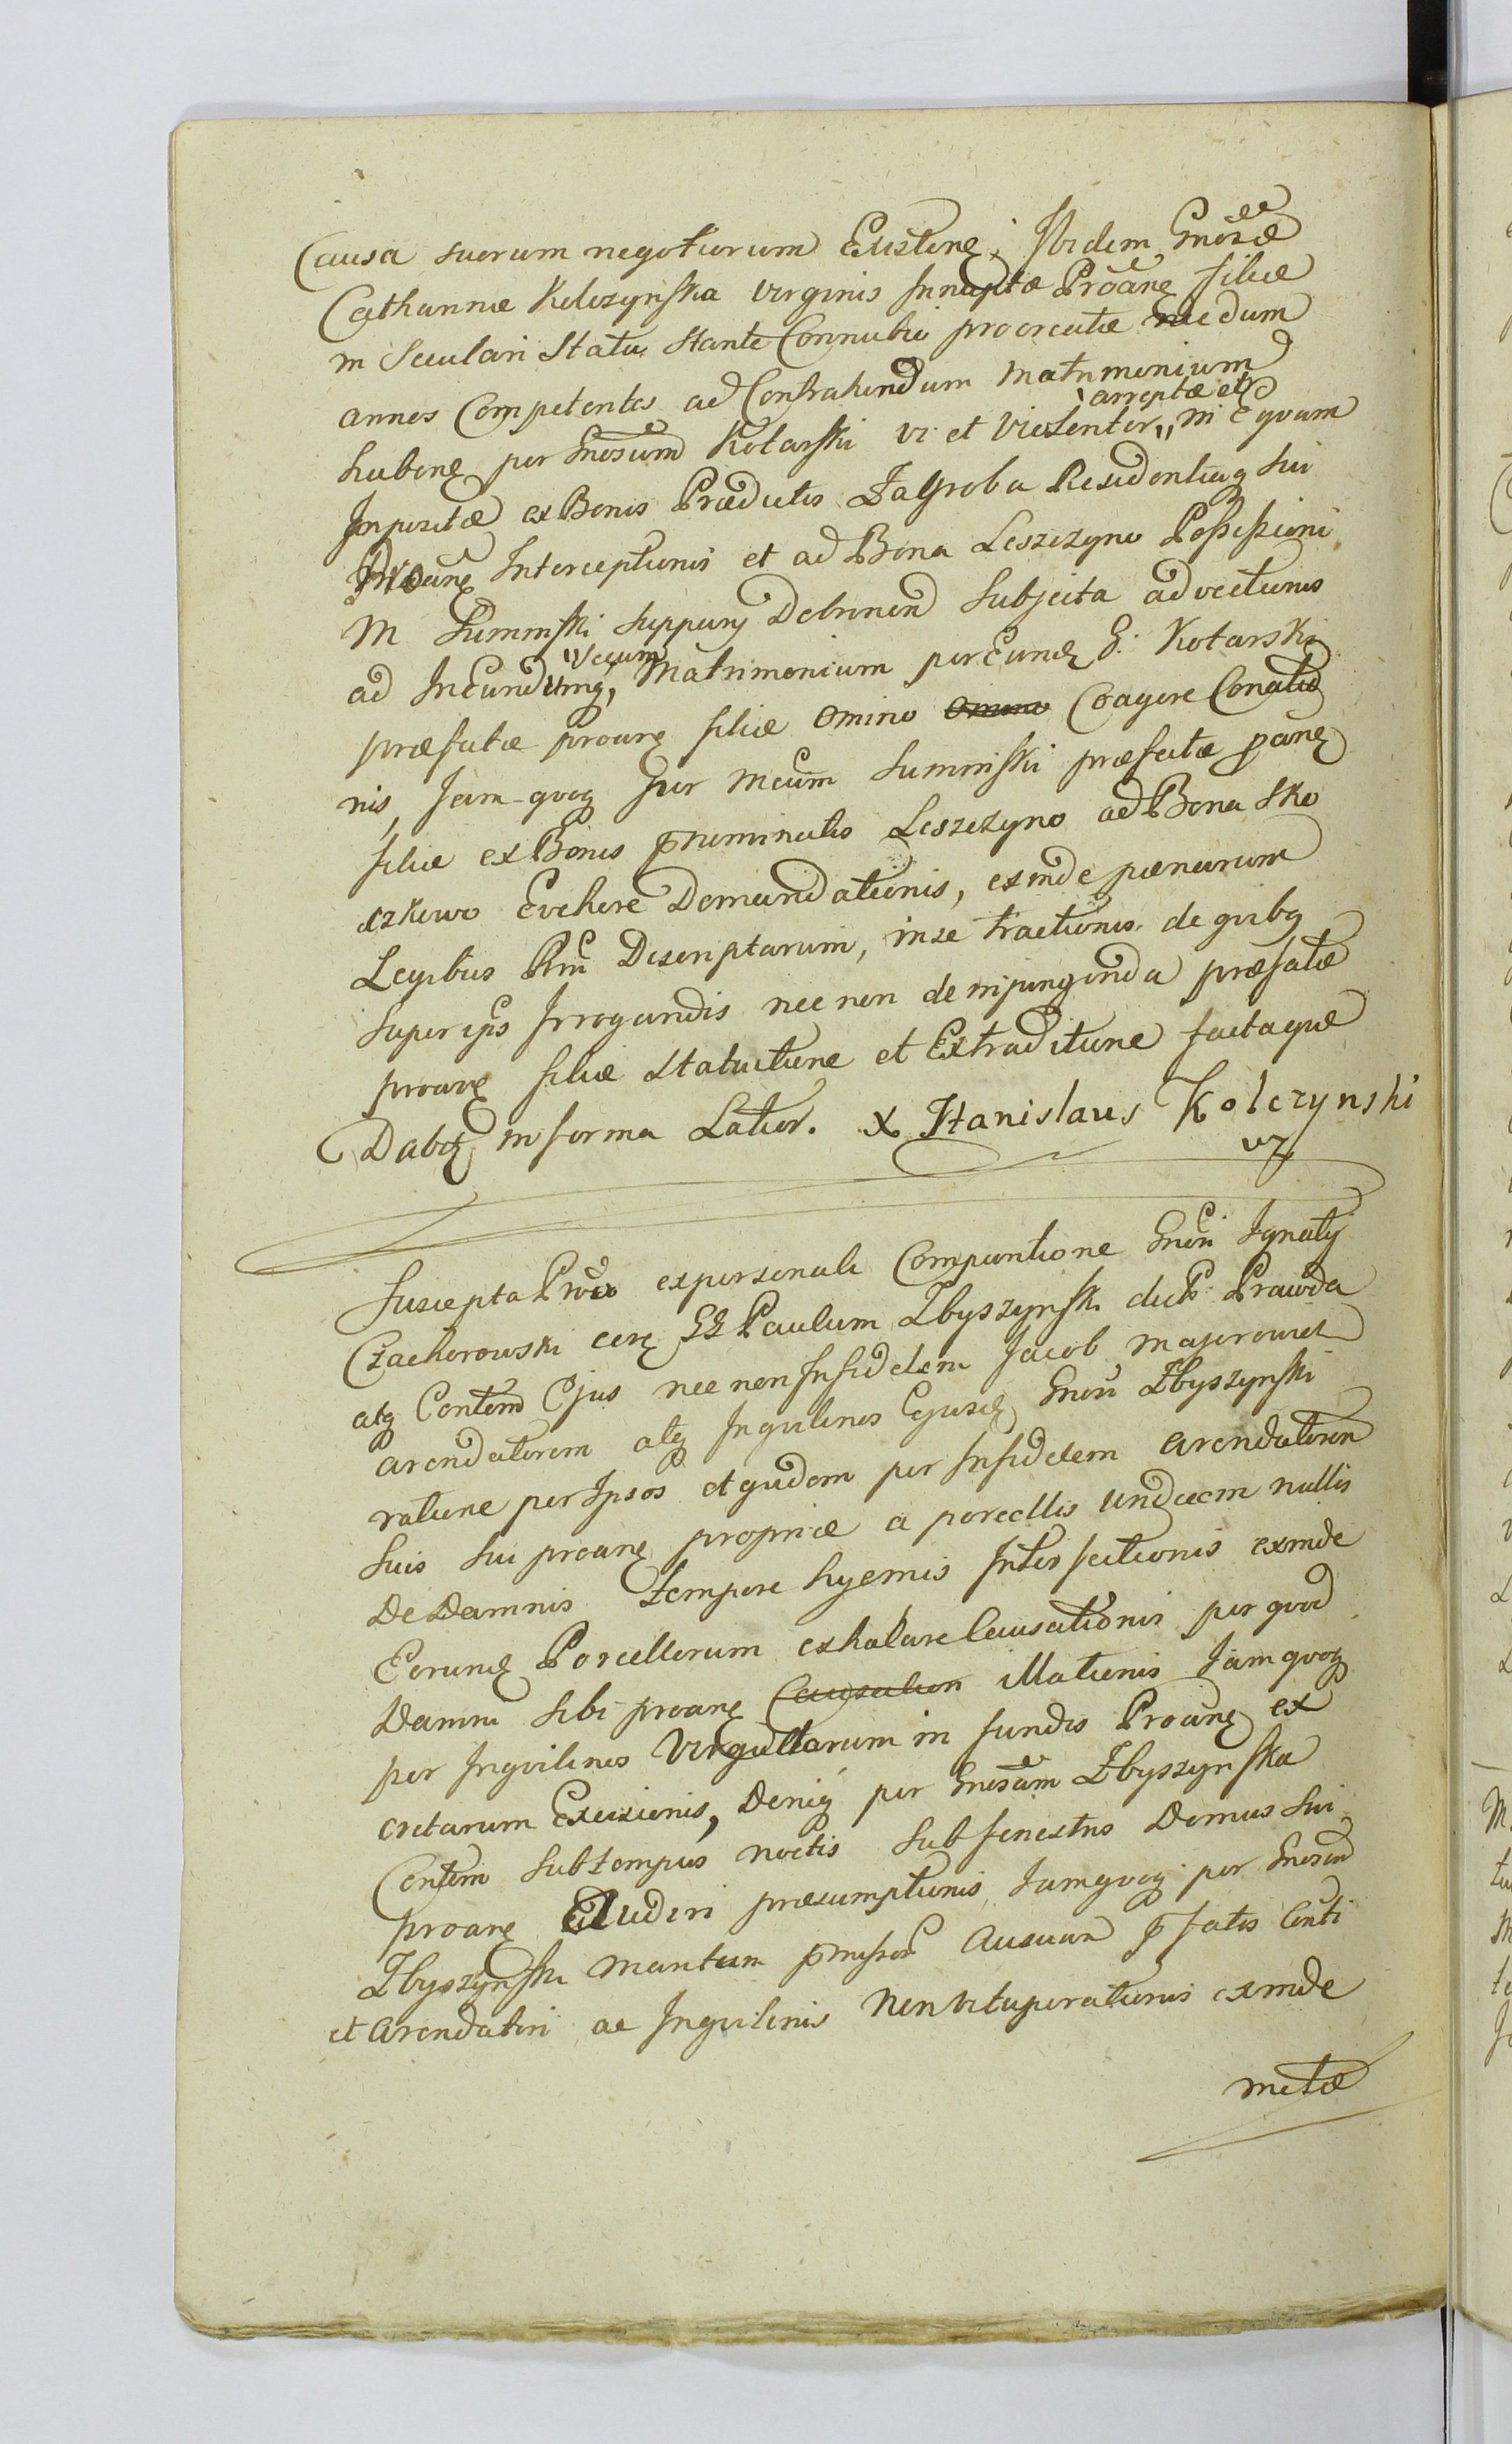 Causa suorum negotiorum Existenę, Ibidem Gnosæ
Catharinæ Kolczynska Virginis Innuptæ Proanę filiæ
in Seculari Statu stante Connubio procreatæ necdum
annos Competentes ad Contrahendum Matrimonium
habenę per Gnosum Kotarski vi et Violenter, arreptæ et in Equum
Impositæ ex Bonis Prædictis Zagroba Residentiaq sui
Proanę Interceptionis et ad Bona Leszczyno Possessioni
M Suminski suppary Dobrinen Subjecta advectionis
ad Ineundumq, Secum Matrimonium per Eundę G. Kotarski
præfatæ proanę filiæ omino Coagere Conatio
nis, Jam-quoq per Mcum Suminski præfatæ panę
filiæ ex Bonis pnominatis Leszczyno ad Bona Sko
czkowo Evehere Demandationis, exinde pænarum
Legibus Rni Descriptarum, in se tractionis de quibq
super ipso Irrogandis nec non de injungenda præfatæ
proanę filiæ statuitione et Extraditione factaquæ
Dabitq in forma Latior. X Stanislaus Kolczynski
Suscepta Proõ ex personali Comparitione Gnosi Ignatij
Czachorowski corę GG Paulum Zbyszynski de P. Prawda
atq Contem Ejus nec non Infidelem Jacob Majorowicz
arendatorem atq Inquilinos Ejusdę Gnosi Zbyszynski
ratione per Ipsos et quidem per Infidelem arendatorem
suis sui proanę propriæ a porcellis undecim nullis
De Damnis tempore hyemis Interfectionis exinde
Eorundę Porcellorum exhalare Causationis per quod
Damni sibi proanę Causation illationis Jamquoq
per Inquilinos Virgultarum in fundis Proanę ex
cretarum Excisionis, Deniq per Gnosam Zbyszynska
Contem sub tempus noctis sub fenestris Domus sui
proanę Eludiri præsumptionis, Jamquoq per Gnosum
Zbyszynski Maritum pmissor Ausuum pfatis Conti
et Arendatori ac Inquilinis Non vituperationis exinde
metæ